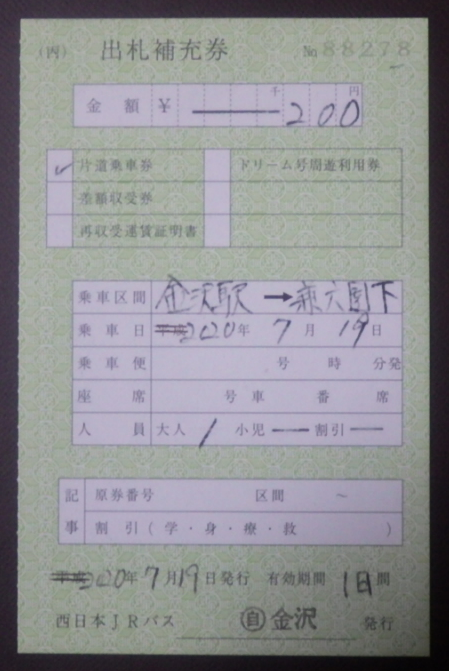 (丙) 出札補充券 No 88278
金額 ¥ 千 円 200
✓ 片道乗車券 ドリーム号周遊利用券
差額収受券
再収受運賃証明書
乗車区間 金沢駅 → 兼六園下
乗車日 平成 2020年 7月 19日
乗車便 号 時 分発
座席 号車 番 席
人員 大人 1 小児 — 割引 —
記事 原券番号 区間 ~
割引(学・身・療・救 )
平成 2020年 7月19日発行 有効期間 1日間
西日本JRバス 自 金沢 発行